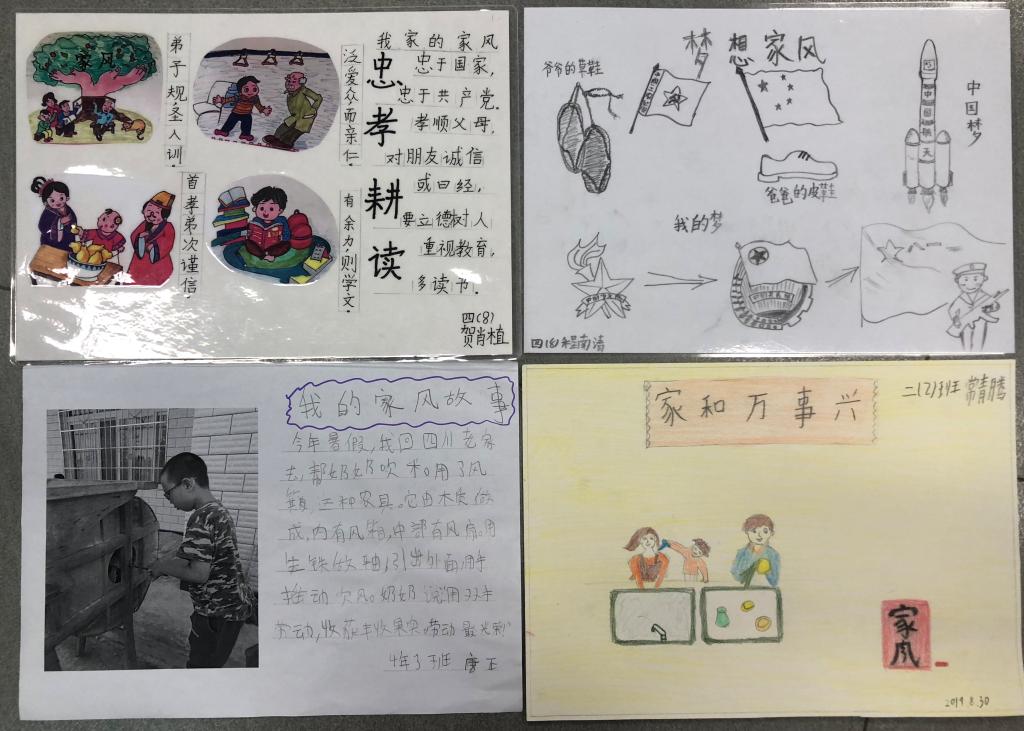 家风
弟子规圣人训。
泛爱众而亲仁。
首孝弟次谨信。
有余力则学文。
我家的家风
忠孝耕读
忠于国家，
忠于共产党。
孝顺父母，
对朋友诚信
或曰经，
要立德树人
重视教育，
多读书。
四(8)
贺肖植
梦想家风
爷爷的草鞋
爸爸的皮鞋
中国航天
中国梦
我的梦
八一
程南清
我的家风故事
今年暑假，我回四川老家
去，帮奶奶吹米。用了风
这种农具。它由木质做
成，内有风箱，中部有风扇。用
生铁做轴，引出外面，用手
摇动吹风。奶奶说用双手
劳动，收获丰收果实。劳动最光荣!
4年3班 唐正
家和万事兴
二(2)班 常青腾
家风
2019.8.30